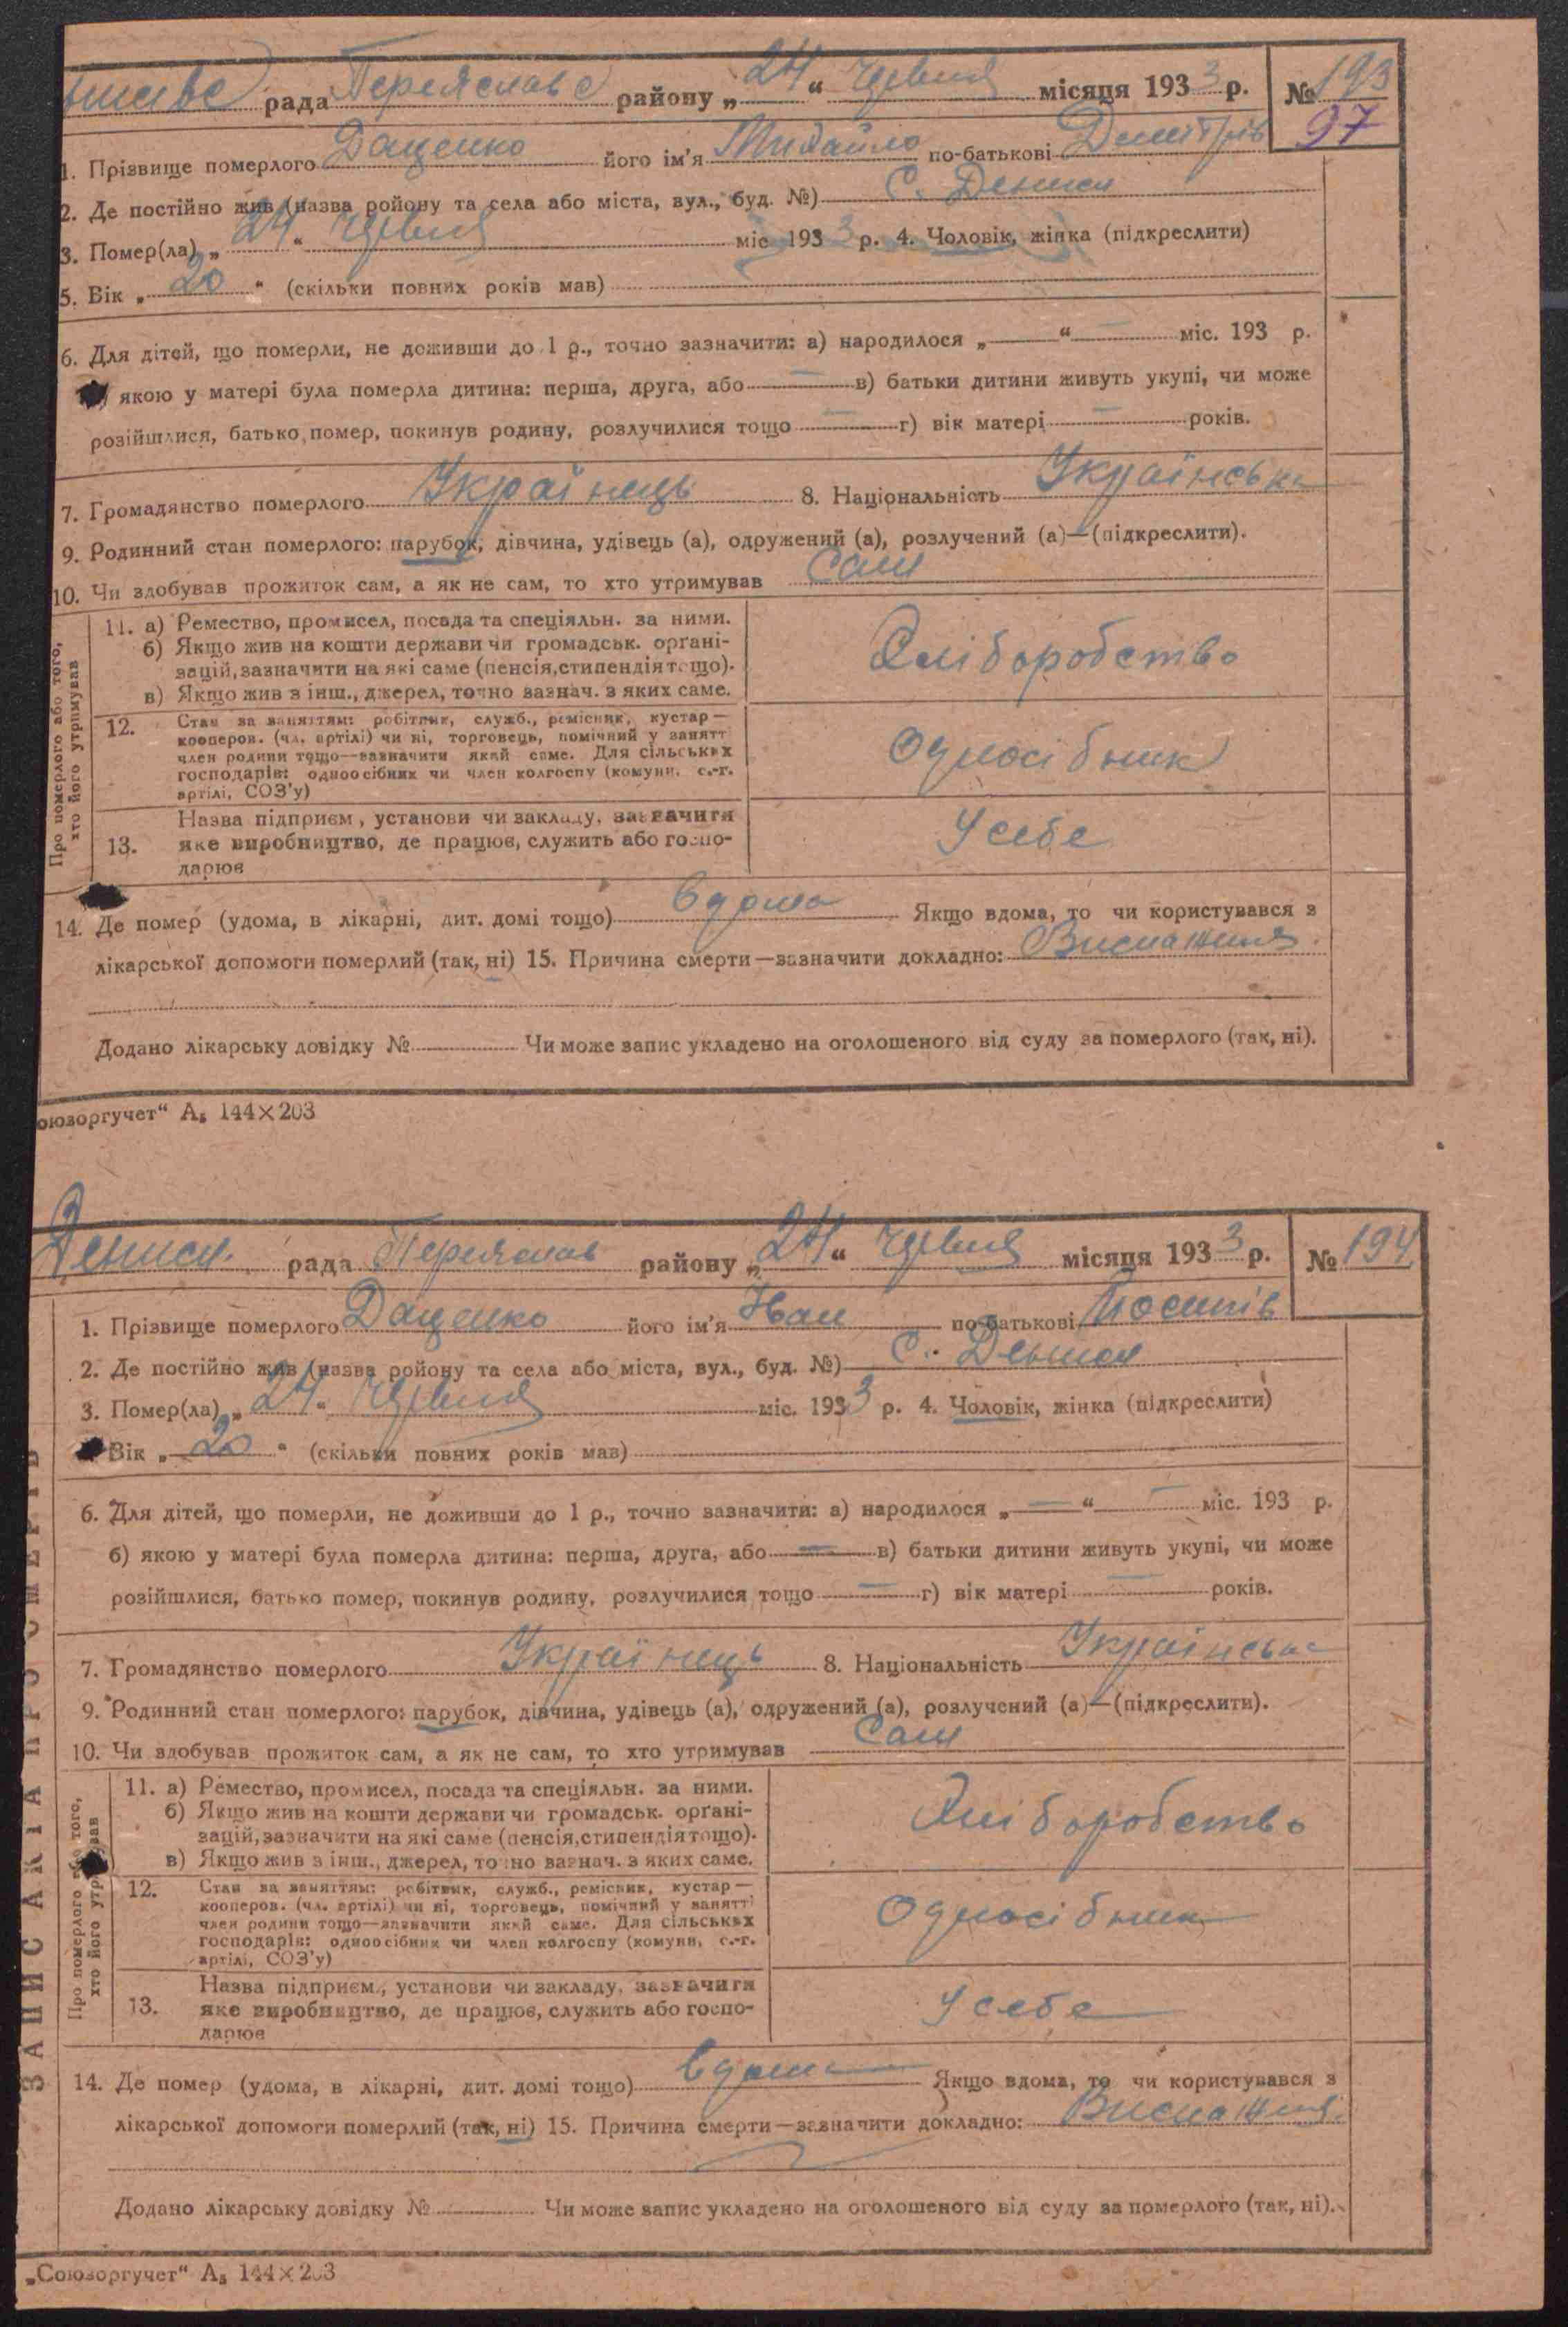 рада Переяслав району „24“ Червня місяця 1933 р. № 193
97
1. Прізвище померлого Даценко його ім'я Михайло по-батькові Дмитрів
2. Де постійно жив (назва ройону та села або міста, вул., буд. №) С. Дениси
3. Помер(ла) „24“ Червня міс. 1933 р. 4. Чоловік, жінка (підкреслити)
5. Вік „20“ (скільки повних років мав)
6. Для дітей, що померли, не доживши до 1 р., точно зазначити: а) народилося „—“ — міс. 193 р.
якою у матері була померла дитина: перша, друга, або — в) батьки дитини живуть укупі, чи може
розійшлися, батько помер, покинув родину, розлучилися тощо — г) вік матері — років.
7. Громадянство померлого Українець 8. Національність Українська
9. Родинний стан померлого: парубок, дівчина, удівець (а), одружений (а), розлучений (а)—(підкреслити).
10. Чи здобував прожиток сам, а як не сам, то хто утримував Сам
Про померлого або того, хто його утримував
11. а) Ремество, промисел, посада та спеціяльн. за ними.
б) Якщо жив на кошти держави чи громадськ. орґані-
зацій, зазначити на які саме (пенсія, стипендія тощо).
в) Якщо жив з інш., джерел, точно зазнач. з яких саме.
Хліборобство
12. Стан за заняттям: робітник, служб., ремісник, кустар—
кооперов. (чл. артілі) чи ні, торговець, помічний у занятт
член родини тощо—зазначити який саме. Для сільських
господарів: одноосібник чи член колгоспу (комуни, с.-г.
артілі, СОЗ'у)
Односібник
13. Назва підприєм., установи чи закладу, зазначити
яке виробництво, де працює, служить або госпо-
дарює
У себе
14. Де помер (удома, в лікарні, дит. домі тощо) вдома Якщо вдома, то чи користувався з
лікарської допомоги померлий (так, ні) 15. Причина смерти—зазначити докладно: Виснаження.
Додано лікарську довідку № Чи може запис укладено на оголошеного від суду за померлого (так, ні).
оюзоргучет“ А5 144×203
Дениси рада Переяслав району „24“ Червня місяця 1933 р. № 194
1. Прізвище померлого Даценко його ім'я Іван по-батькові Йосипів
2. Де постійно жив (назва ройону та села або міста, вул., буд. №) С. Дениси
3. Помер(ла) „24“ Червня міс. 1933 р. 4. Чоловік, жінка (підкреслити)
Вік „20“ (скільки повних років мав)
6. Для дітей, що померли, не доживши до 1 р., точно зазначити: а) народилося „—“ — міс. 193 р.
б) якою у матері була померла дитина: перша, друга, або — в) батьки дитини живуть укупі, чи може
розійшлися, батько помер, покинув родину, розлучилися тощо — г) вік матері — років.
7. Громадянство померлого Українець 8. Національність Українська
9. Родинний стан померлого: парубок, дівчина, удівець (а), одружений (а), розлучений (а)—(підкреслити).
10. Чи здобував прожиток сам, а як не сам, то хто утримував Сам
ЗАПИС АКТА ПРО СМЕРТЬ
Про померлого або того, хто його утримував
11. а) Ремество, промисел, посада та спеціяльн. за ними.
б) Якщо жив на кошти держави чи громадськ. орґані-
зацій, зазначити на які саме (пенсія, стипендія тощо).
в) Якщо жив з інш., джерел, точно зазнач. з яких саме.
Хліборобство
12. Стан за заняттям: робітник, служб., ремісник, кустар—
кооперов. (чл. артілі) чи ні, торговець, помічний у занятті
член родини тощо—зазначити який саме. Для сільських
господарів: одноосібник чи член колгоспу (комуни, с.-г.
артілі, СОЗ'у)
Односібник
13. Назва підприєм., установи чи закладу, зазначити
яке виробництво, де працює, служить або госпо-
дарює
У себе
14. Де помер (удома, в лікарні, дит. домі тощо) вдома Якщо вдома, то чи користувався з
лікарської допомоги померлий (так, ні) 15. Причина смерти—зазначити докладно: Виснаження.
Додано лікарську довідку № Чи може запис укладено на оголошеного від суду за померлого (так, ні).
„Союзоргучет“ А5 144×203